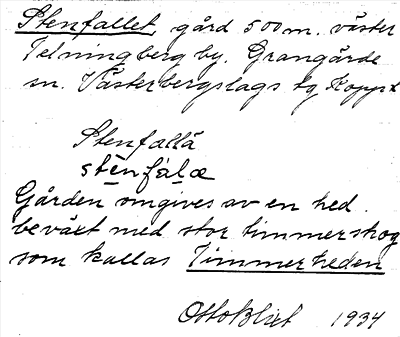 Stenfallet, gård 500 m. väster
Telningberg by. Grangärde
sn. Västerbergslags tg Koppb
Stenfallä
stènfàlæ
Gården omgives av en hed
beväxt med stor timmerskog
som kallas Timmerheden
Otto Blixt 1934